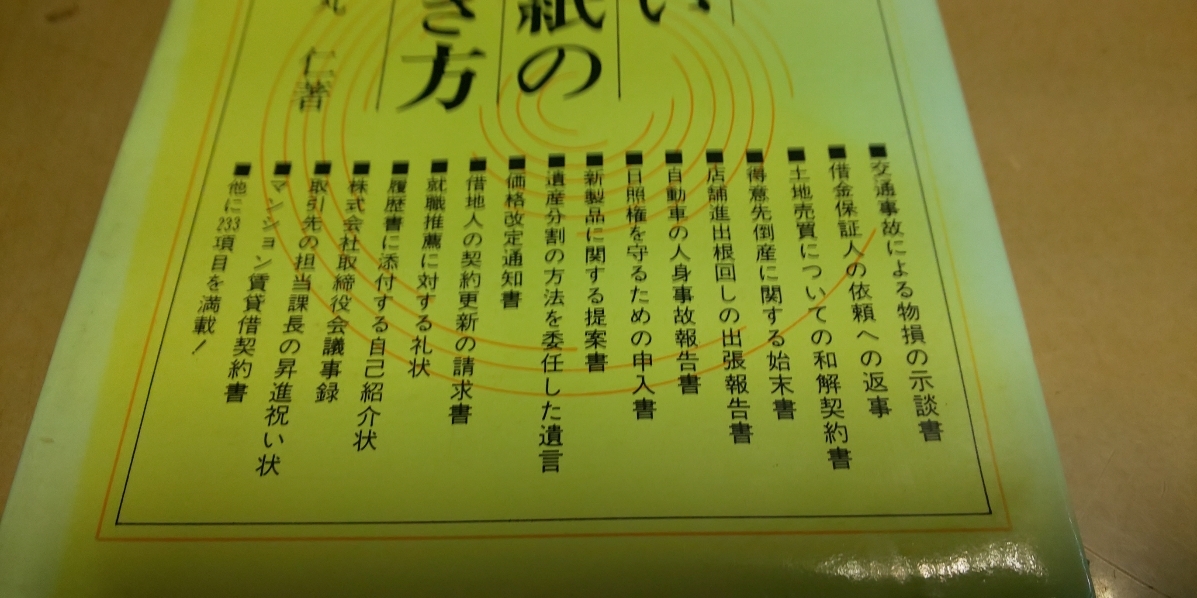 い
紙の
き方
仁著
■交通事故による物損の示談書
■借金保証人の依頼への返事
■土地売買についての和解契約書
■得意先倒産に関する始末書
■店舗進出根回しの出張報告書
■自動車の人身事故報告書
■日照権を守るための申入書
■新製品に関する提案書
■遺産分割の方法を委任した遺言
■価格改定通知書
■借地人の契約更新の請求書
■就職推薦に対する礼状
■履歴書に添付する自己紹介状
■株式会社取締役会議事録
■取引先の担当課長の昇進祝い状
■マンション賃貸借契約書
■他に233項目を満載!